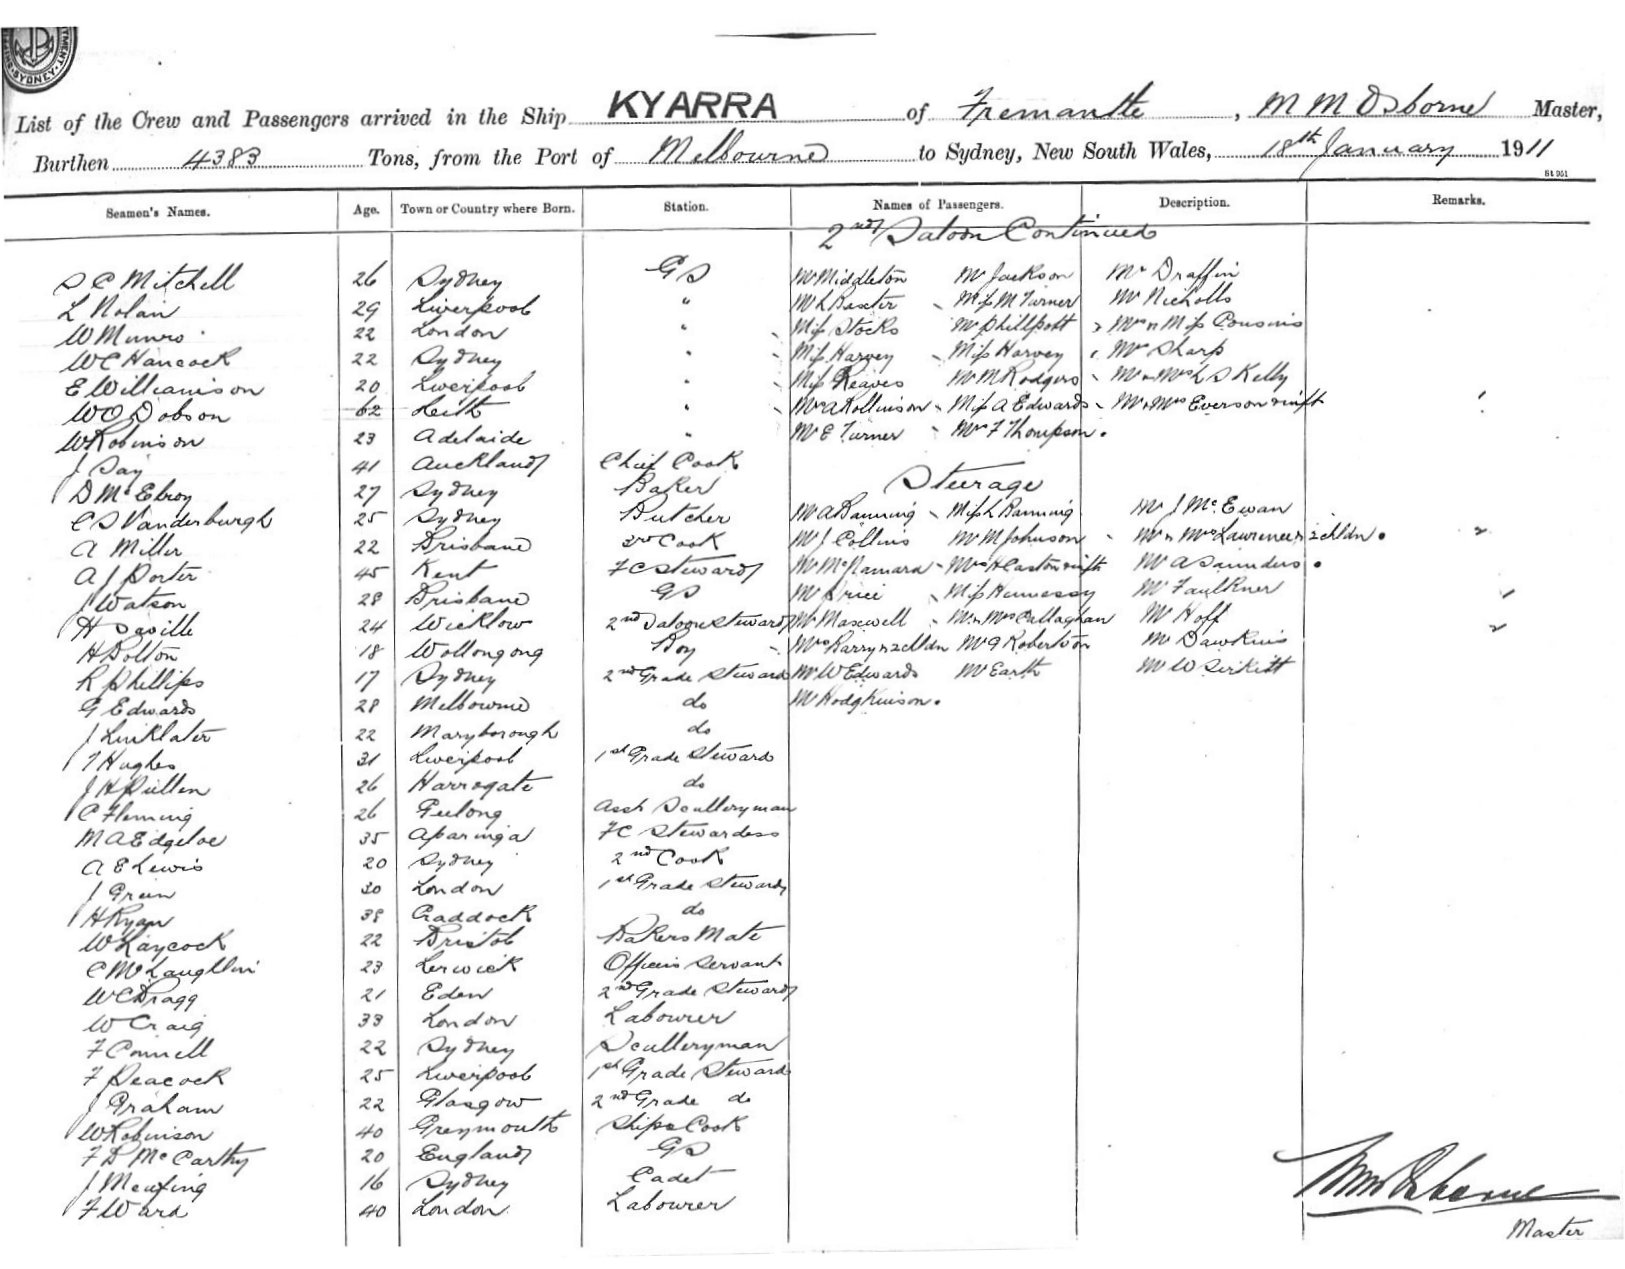 SYDNEY
List of the Crew and Passengers arrived in the Ship KYARRA of Fremantle, M M Osborne Master,
Burthen 4383 Tons, from the Port of Melbourne to Sydney, New South Wales, 18th January 1911
St 951
Seamen's Names. Age. Town or Country where Born. Station. Names of Passengers. Description. Remarks.
2nd Saloon Continued
S C Mitchell 26 Sydney GS Mr Middleton Mr Jackson Mr Draffin
L Nolan 29 Liverpool " Mr L Baxter Miss M Turner Mr Nicholls
W Munro 22 London " Miss Stocks Mr Phillpott Mr & Miss Cousins
W C Hancock 22 Sydney " Miss Harvey Miss Harvey Mr Sharp
E Williamson 20 Liverpool " Miss Reaves Mr M Rodgers Mr & Mrs L S Kelly
W O Dobson 62 Leith " Mr A Rollinson Miss A Edwards Mr & Mrs Everson & inft
W Robinson 23 Adelaide " Mr E Turner Mr F Thompson.
J Day 41 Auckland Chief Cook
D McElroy 27 Sydney Baker Steerage
C S Vanderburgh 25 Sydney Butcher Mr A Banning Miss L Banning Mr J McEwan
A Miller 22 Brisbane 3rd Cook Mr J Collins Mr M Johnson Mr & Mrs Lawrence & 2 chldn. 2
A J Porter 45 Kent FC Steward Mr McNamara Mrs H Caston & inft Mr A Saunders.
J Watson 28 Brisbane GS Mr Price Miss Hennessy Mr Faulkner
H Saville 24 Wicklow 2nd Saloon Steward Mr Maxwell Mr & Mrs Callaghan Mr Hoff 2
H Bolton 18 Wollongong Boy Mrs Barry & 2 chldn Mr G Robertson Mr Dawkins
R Phillips 17 Sydney 2nd Grade Steward Mr W Edwards Mr Earth Mr W Sirkitt
G Edwards 28 Melbourne do Mr Hodgkinson.
J Linklater 22 Maryborough do
T Hughes 31 Liverpool 1st Grade Steward
J H Pullen 26 Harrogate do
C Fleming 26 Geelong Asst Sculleryman
M A Edgeloe 35 Aparinga FC Stewardess
A E Lewis 20 Sydney 2nd Cook
J Green 30 London 1st Grade Steward
H Ryan 38 Craddock do
W Laycock 22 Bristol Bakers Mate
C McLaughlin 23 Lerwick Officers Servant
W C Bragg 21 Eden 2nd Grade Steward
W Craig 33 London Labourer
F Connell 22 Sydney Sculleryman
F Peacock 25 Liverpool 1st Grade Steward
J Graham 22 Glasgow 2nd Grade do
W Robinson 40 Greymouth Ships Cook
F D McCarthy 20 England GS
J Meufing 16 Sydney Cadet
F Ward 40 London Labourer
M M Osborne
Master